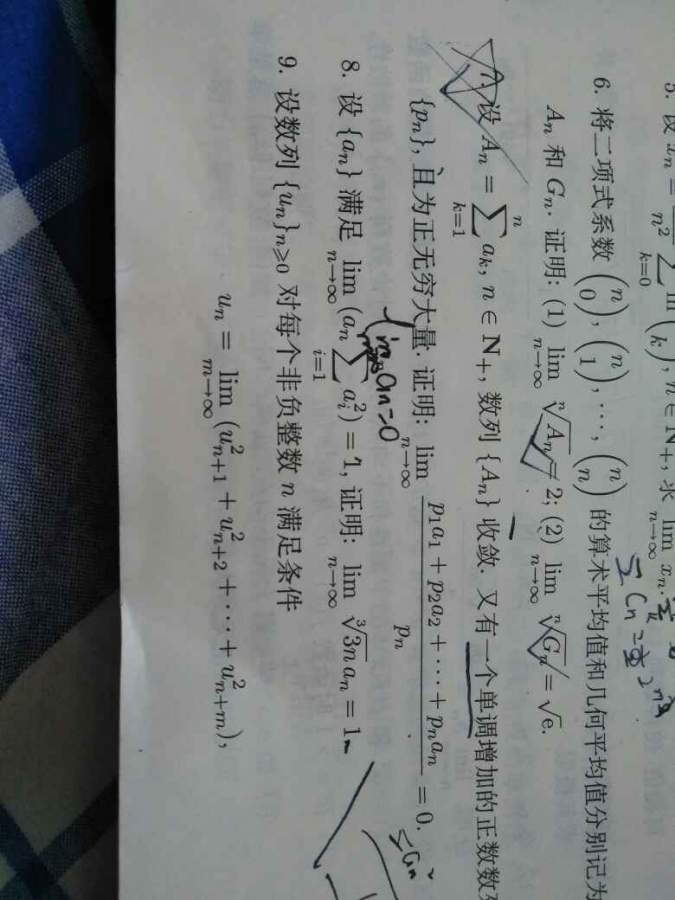 5. 设 x_n = 1/n² ∑_{k=0}^{n} ln (n k), n ∈ N₊, 求 lim_{n→∞} x_n.
6. 将二项式系数 (n 0), (n 1), ⋯, (n n) 的算术平均值和几何平均值分别记为
A_n 和 G_n. 证明: (1) lim_{n→∞} ⁿ√A_n = 2; (2) lim_{n→∞} ⁿ√G_n = √e.
7. 设 A_n = ∑_{k=1}^{n} a_k, n ∈ N₊, 数列 {A_n} 收敛. 又有一个单调增加的正数数列
{p_n}, 且为正无穷大量. 证明: lim_{n→∞} (p₁a₁ + p₂a₂ + ⋯ + p_n a_n) / p_n = 0.
lim a_n = 0
8. 设 {a_n} 满足 lim_{n→∞} (a_n ∑_{i=1}^{n} a_i²) = 1, 证明: lim_{n→∞} ∛3n a_n = 1.
9. 设数列 {u_n}_{n≥0} 对每个非负整数 n 满足条件
u_n = lim_{m→∞} (u²_{n+1} + u²_{n+2} + ⋯ + u²_{n+m}),